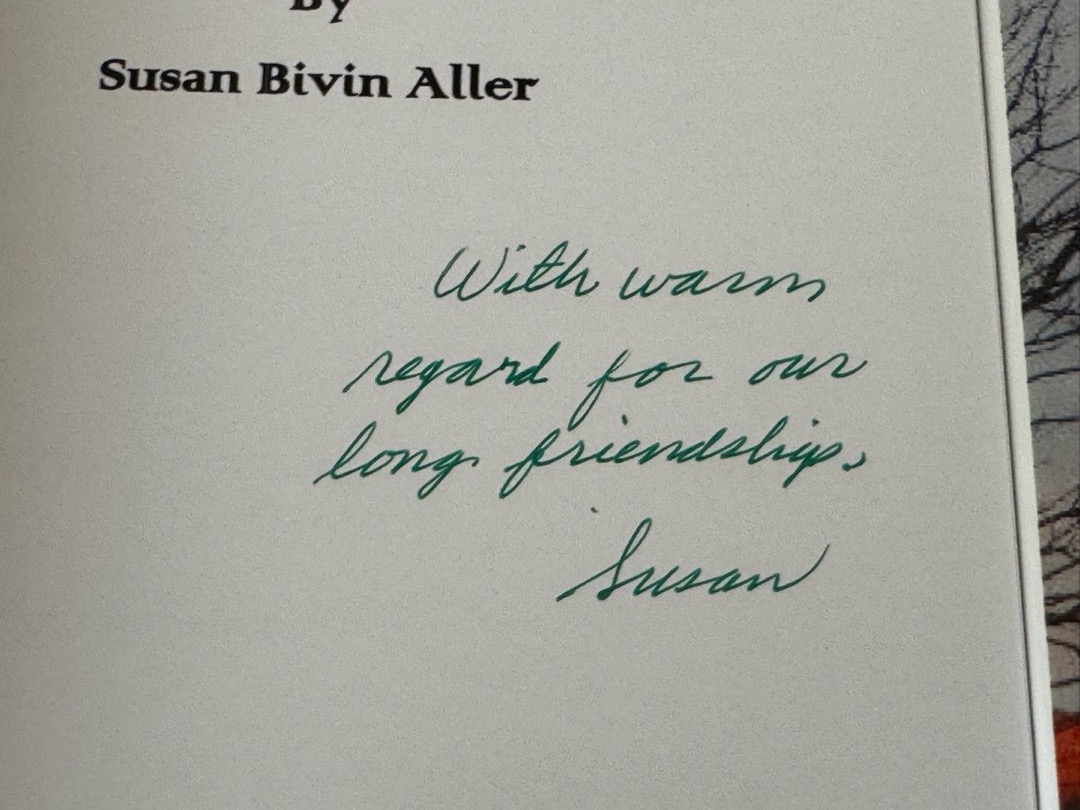 By
Susan Bivin Aller
With warm
regard for our
long friendship,
Susan